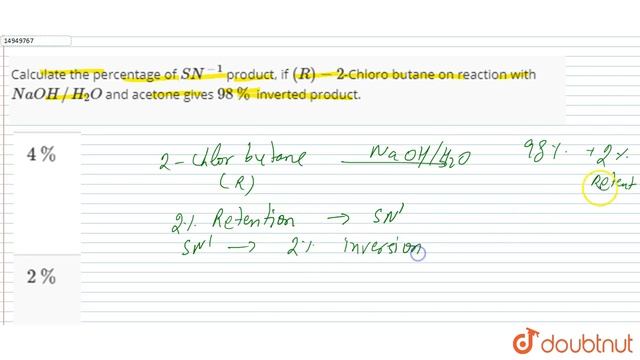 14949767
Calculate the percentage of SN⁻¹ product, if (R) − 2-Chloro butane on reaction with
NaOH/H₂O and acetone gives 98% inverted product.
4%
2-Chlor butane NaOH/H₂O 98%. + 2%.
(R) Retent
2% Retention → SN¹
SN¹ → 2% inversion
2%
doubtnut